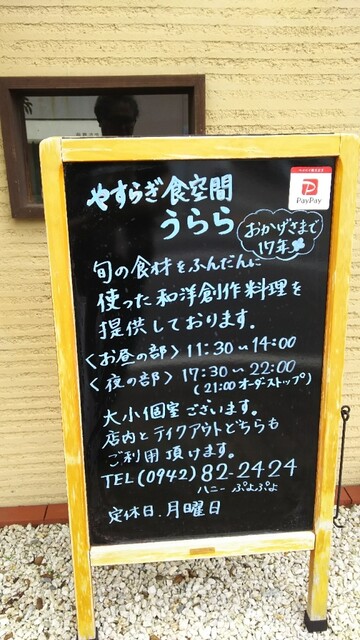 やすらぎ食空間
うらら
PayPay
おかげさまで
17年
旬の食材をふんだんに
使った和洋創作料理を
提供しております。
〈お昼の部〉11:30~14:00
〈夜の部〉17:30~22:00
(21:00オーダーストップ)
大小個室ございます。
店内とテイクアウトどちらも
ご利用頂けます。
TEL(0942)82-2424
ハニー ぷよぷよ
定休日.月曜日